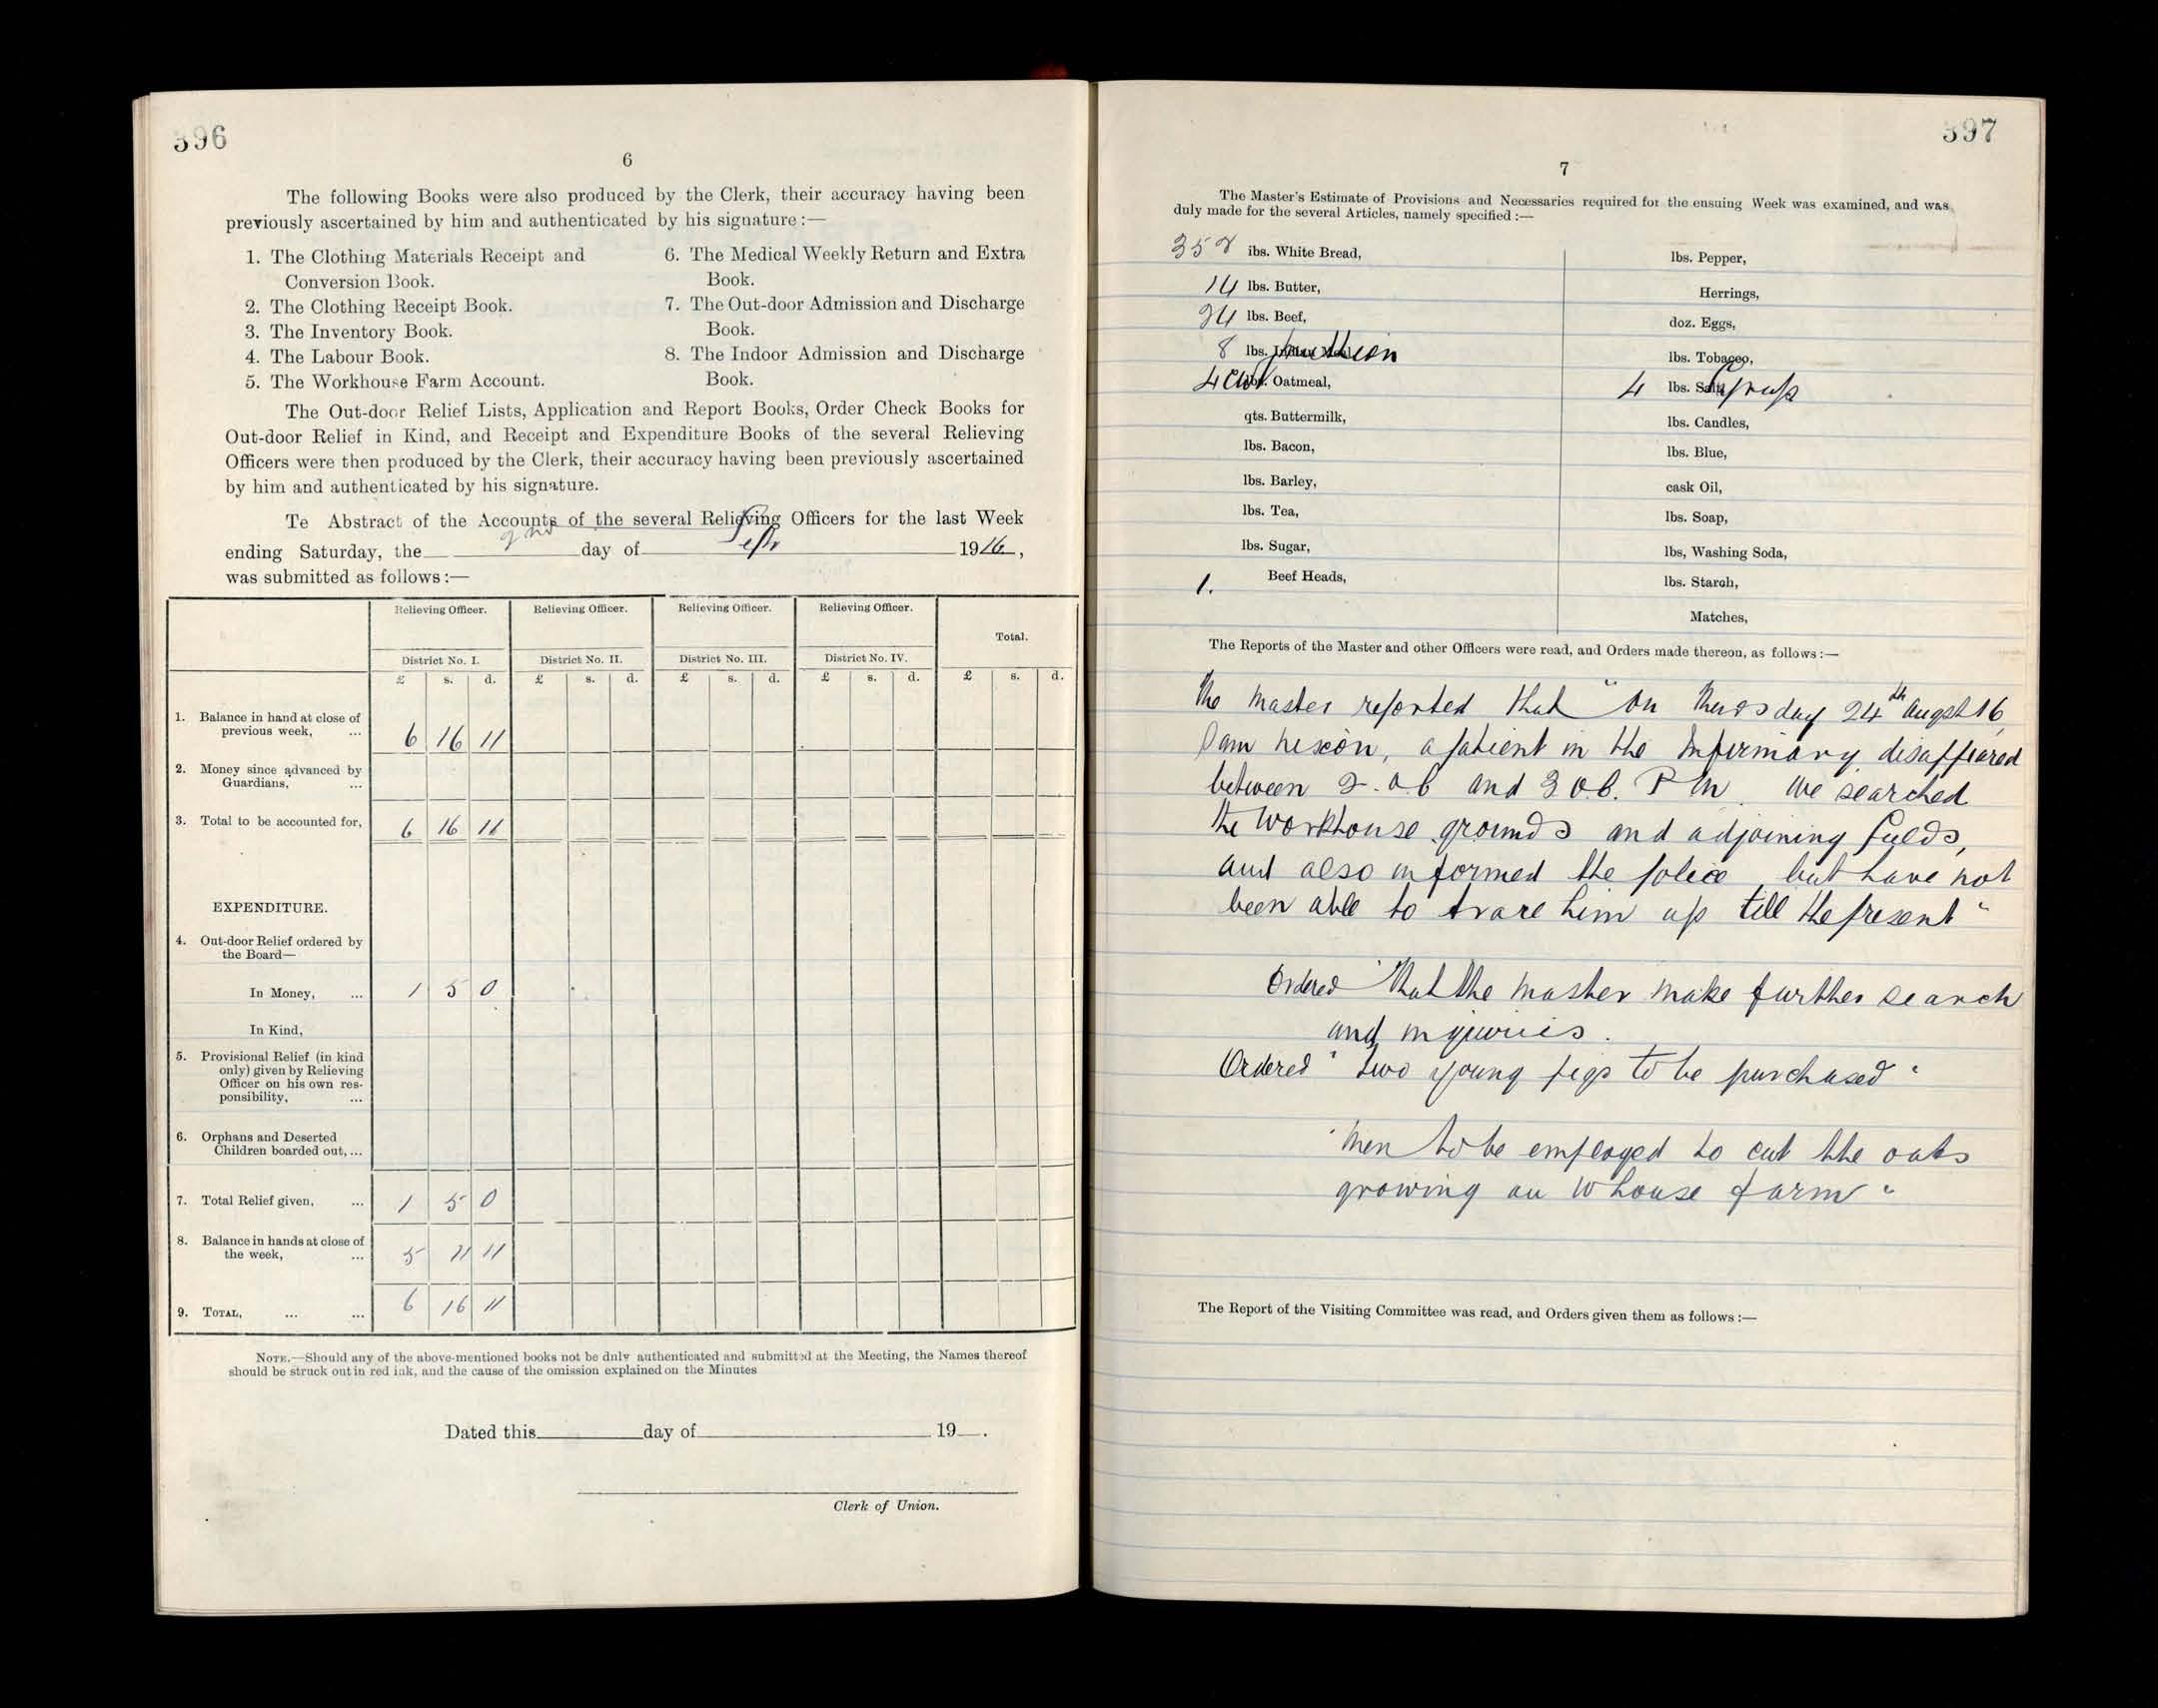 396
6
The following Books were also produced by the Clerk, their accuracy having been
previously ascertained by him and authenticated by his signature :—
1. The Clothing Materials Receipt and
Conversion Book.
2. The Clothing Receipt Book.
3. The Inventory Book.
4. The Labour Book.
5. The Workhouse Farm Account.
6. The Medical Weekly Return and Extra
Book.
7. The Out-door Admission and Discharge
Book.
8. The Indoor Admission and Discharge
Book.
The Out-door Relief Lists, Application and Report Books, Order Check Books for
Out-door Relief in Kind, and Receipt and Expenditure Books of the several Relieving
Officers were then produced by the Clerk, their accuracy having been previously ascertained
by him and authenticated by his signature.
Te Abstract of the Accounts of the several Relieving Officers for the last Week
ending Saturday, the 2nd day of Sept 1916,
was submitted as follows :—
Relieving Officer. Relieving Officer. Relieving Officer. Relieving Officer.
Total.
District No. I. District No. II. District No. III. District No. IV.
£ s. d. £ s. d. £ s. d. £ s. d. £ s. d.
1. Balance in hand at close of
previous week, ... 6 16 11
2. Money since advanced by
Guardians, ...
3. Total to be accounted for, 6 16 11
EXPENDITURE.
4. Out-door Relief ordered by
the Board—
In Money, ... 1 5 0
In Kind,
5. Provisional Relief (in kind
only) given by Relieving
Officer on his own res-
ponsibility, ...
6. Orphans and Deserted
Children boarded out, ...
7. Total Relief given, ... 1 5 0
8. Balance in hands at close of
the week, ... 5 11 11
9. TOTAL, ... ... 6 16 11
NOTE.—Should any of the above-mentioned books not be dnly authenticated and submitted at the Meeting, the Names thereof
should be struck out in red ink, and the cause of the omission explained on the Minutes
Dated this day of 19 .
Clerk of Union.
397
7
The Master's Estimate of Provisions and Necessaries required for the ensuing Week was examined, and was
duly made for the several Articles, namely specified :—
358 lbs. White Bread,
14 lbs. Butter,
24 lbs. Beef,
8 lbs. Indian Meal, Mutton
4 Cwt lbs. Oatmeal,
qts. Buttermilk,
lbs. Bacon,
lbs. Barley,
lbs. Tea,
lbs. Sugar,
1. Beef Heads,
lbs. Pepper,
Herrings,
doz. Eggs,
lbs. Tobacco,
4 lbs. Salt,
lbs. Candles,
lbs. Blue,
cask Oil,
lbs. Soap,
lbs, Washing Soda,
lbs. Starch,
Matches,
The Reports of the Master and other Officers were read, and Orders made thereon, as follows :—
The Master reported that "On Thursday 24th Augst 16
Sam Nixon, a patient in the Infirmary disappeared
between 2.o.c and 3 o.c. P M. We searched
the Workhouse grounds and adjoining fields,
and also informed the police but have not
been able to trace him up till the present"
Ordered "That the Master make further search
and inquiries.
Ordered "two young pigs to be purchased"
"Men to be employed to cut the oats
growing on Whouse farm"
The Report of the Visiting Committee was read, and Orders given them as follows :—